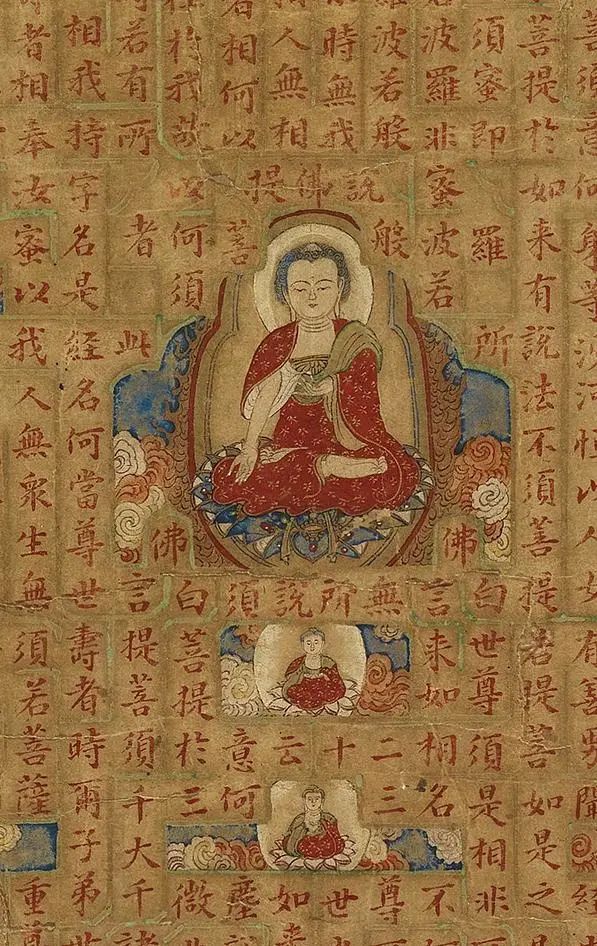 善須意何身等沙河恒以人女有善男聞經
菩提於如来有説法不須菩提者提菩如是之
須蜜即羅所佛白世尊須是相非
波羅非蜜波若言来如相名不
波若般説般無二三尊
時無我佛所十世
人無相提説云如
相何以菩須意何塵
於我故以何須佛白菩提於三微
若有所者此言提菩須千大千諸
相我持字名是経名何當尊世壽者時爾子弟
者相奉汝蜜以我人無衆生無須若菩薩重